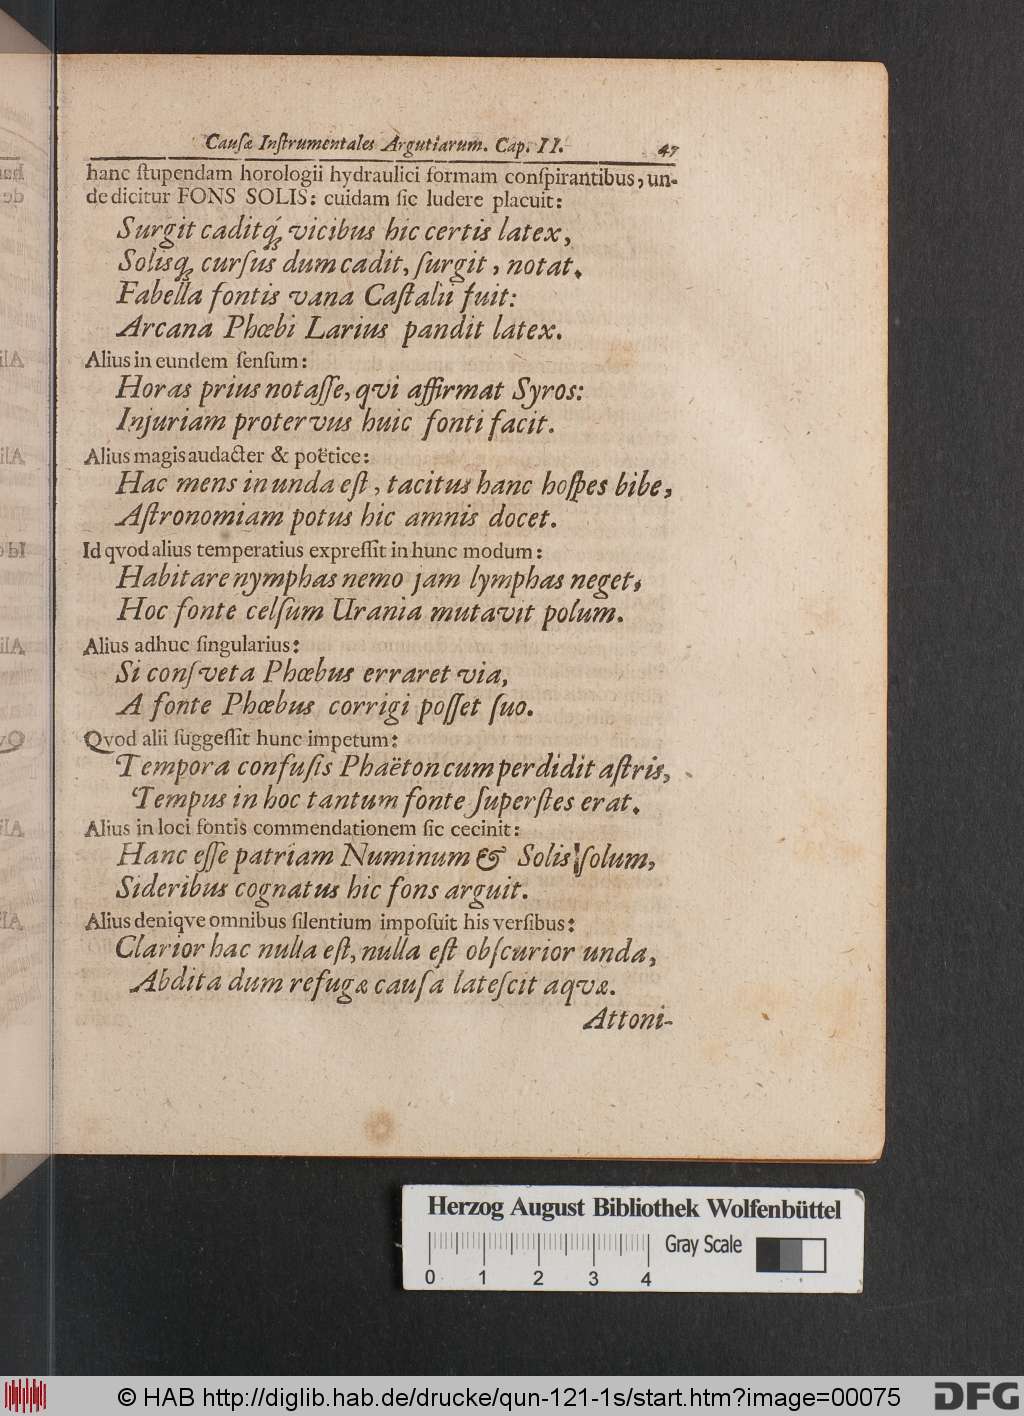 Cauſæ Inſtrumentales Argutiarum. Cap. II. 47
hanc ſtupendam horologii hydraulici formam conſpirantibus, un-
de dicitur FONS SOLIS: cuidam ſic ludere placuit:
Surgit caditq́; vicibus hic certis latex,
Solisq; curſus dum cadit, ſurgit, notat.
Fabella fontis vana Caſtalii fuit:
Arcana Phœbi Larius pandit latex.
Alius in eundem ſenſum:
Horas prius notaſſe, qvi affirmat Syros:
Injuriam protervus huic fonti facit.
Alius magis audacter & poëtice:
Hac mens in unda eſt, tacitus hanc hoſpes bibe,
Aſtronomiam potus hic amnis docet.
Id qvod alius temperatius expreſſit in hunc modum:
Habitare nymphas nemo jam lymphas neget,
Hoc fonte celſum Urania mutavit polum.
Alius adhuc ſingularius:
Si conſveta Phœbus erraret via,
A fonte Phœbus corrigi poſſet ſuo.
Qvod alii ſuggeſſit hunc impetum:
Tempora confuſis Phaëton cum perdidit aſtris,
Tempus in hoc tantum fonte ſuperſtes erat.
Alius in loci fontis commendationem ſic cecinit:
Hanc eſſe patriam Numinum & Solis ſolum,
Sideribus cognatus hic fons arguit.
Alius deniqve omnibus ſilentium impoſuit his verſibus:
Clarior hac nulla eſt, nulla eſt obſcurior unda,
Abdita dum refugæ cauſa lateſcit aqvæ.
Attoni-
Herzog August Bibliothek Wolfenbüttel
Gray Scale
0 1 2 3 4
© HAB http://diglib.hab.de/drucke/qun-121-1s/start.htm?image=00075
DFG